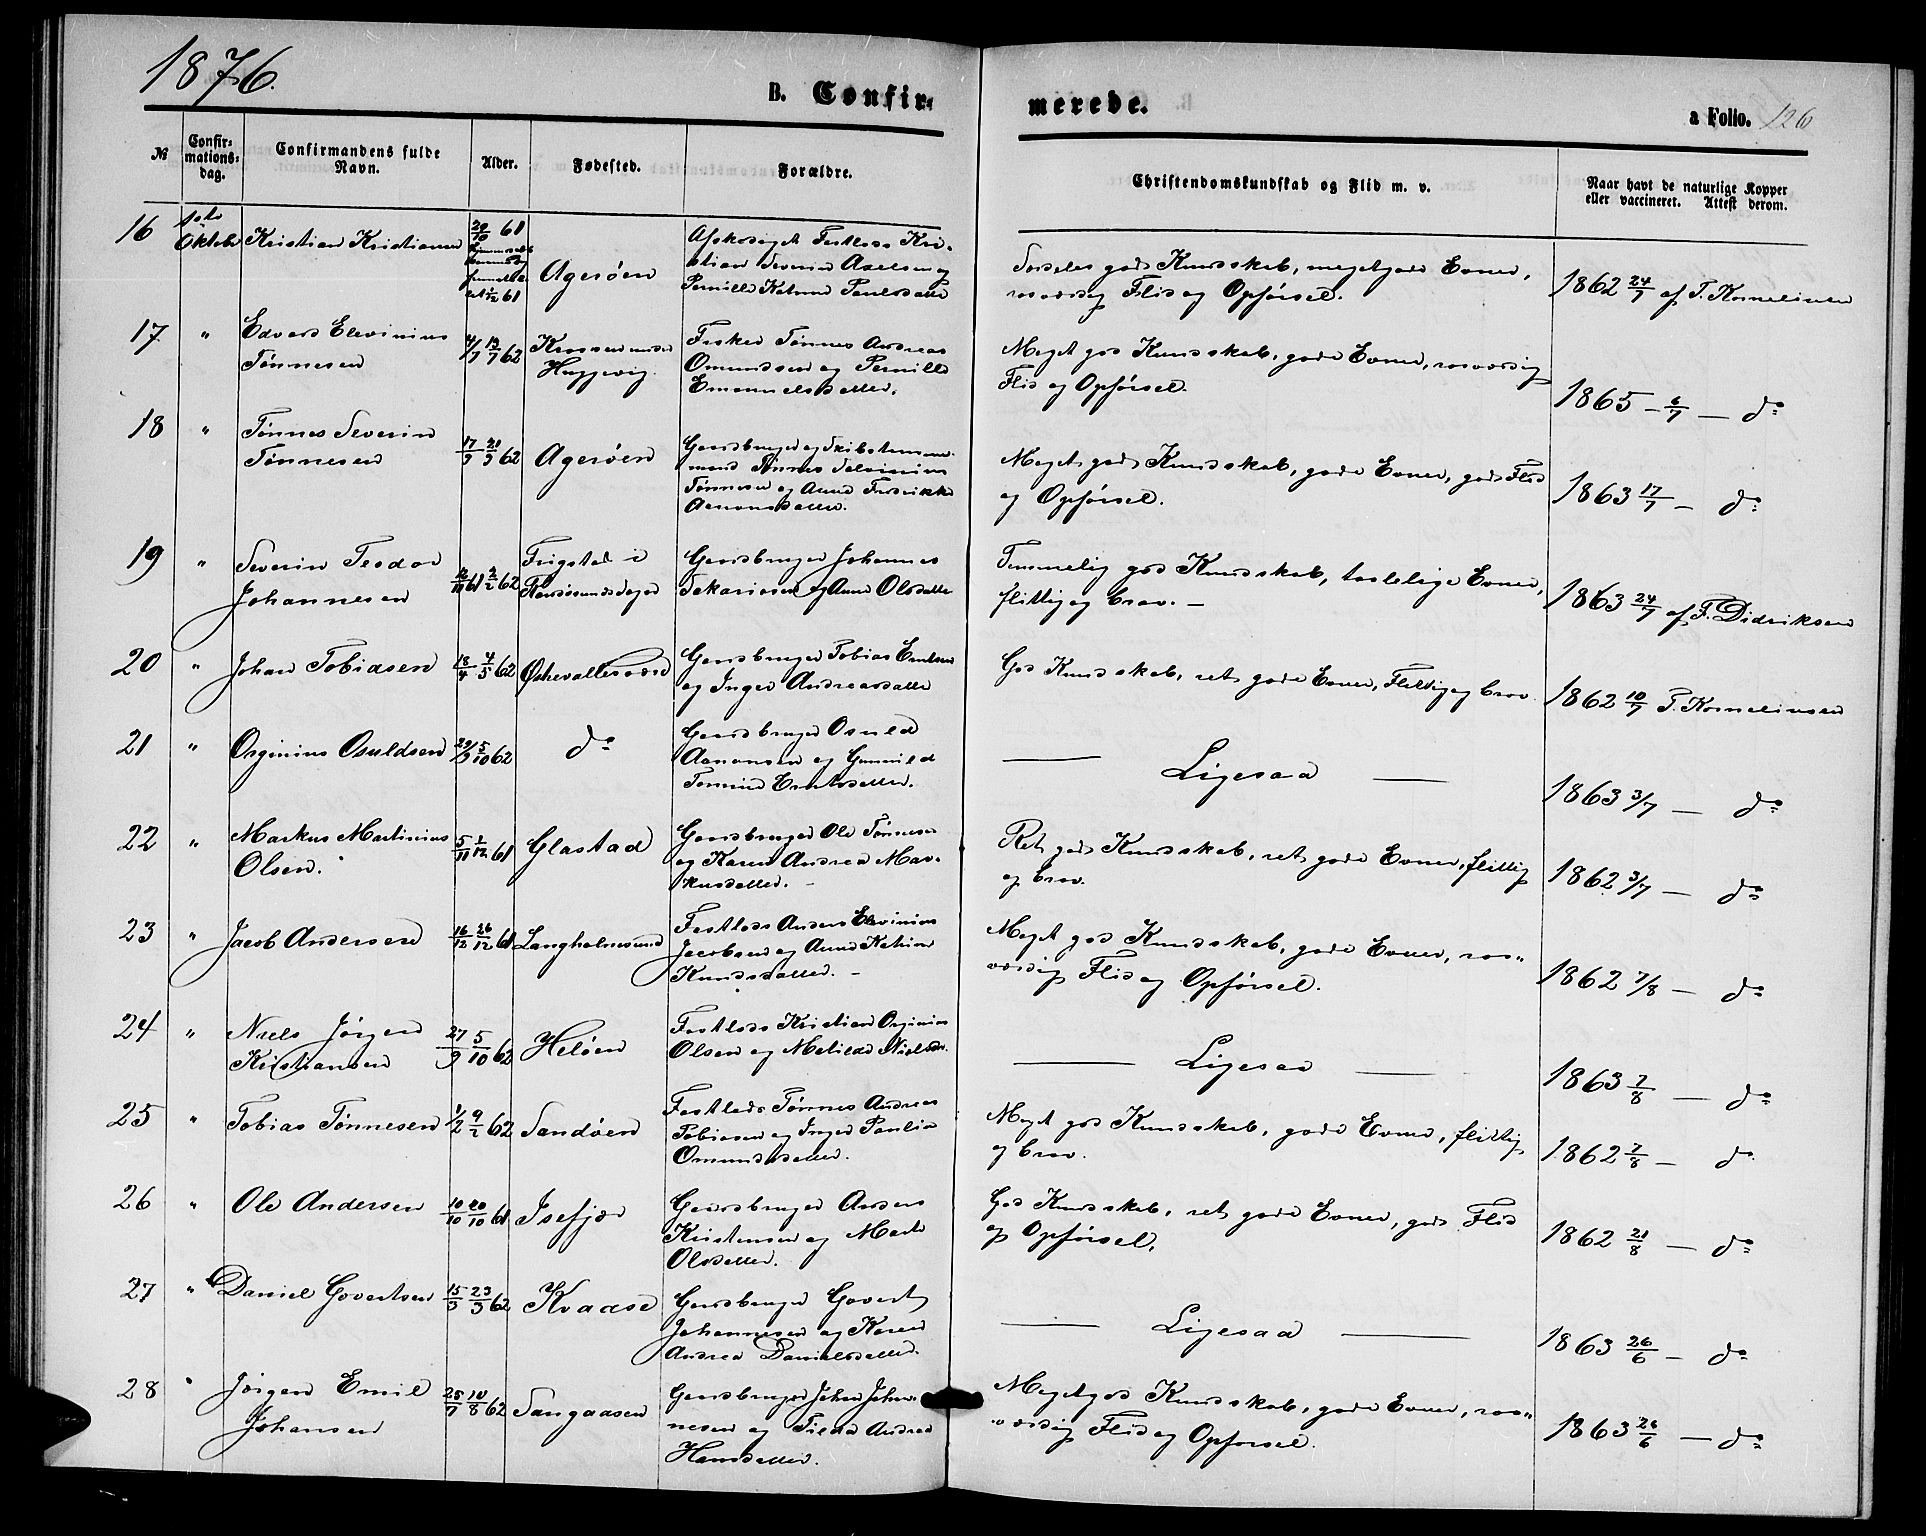 1876.
B. Confir-
merede.
a Folio. 126
№
Confir-
mations-
dag.
Confirmandens fulde
Navn.
Alder.
Fødested.
Forældre.
Christendomskundskab og Flid m. v.
Naar havt de naturlige Kopper
eller vaccineret. Attest derom.
16 1ste Oktober Kristian Kristiansen 29/10 61
døbt 1/12 61 Agerøen
Afskediget Festlods Kri-
stian Severin Axelsen og
Pernille Katrine Paulsdatter
Særdeles god Kundskab, megetgode Evner,
rosværdig Flid og Opførsel.
1862 24/7 af T. Kornelinsen
17 " Edvard Elevinius
Tønnesen
4/7 13/7 62 Krossen under
Huggevig.
Fisker Tønnes Andreas
Omundsen og Pernille
Emanuelsdatter.
Meget god Kundskab, gode Evner, rosværdig
Flid og Opførsel.
1865 - 6/7 - do
18 " Tønnes Severin
Tønnesen
17/3 21/3 62 Agerøen
Gaardbruger og Skibstømmer-
mand Tønnes Salvinius
Tønnesen og Anne Fredrikke
Aanonsdatter.
Meget god Kundskab, gode Evner, god Flid
og Opførsel.
1863 17/7 - do
19 " Severin Teodor
Johannesen
61 2/2 62 Frigstad i
Randøsunds Sogn
Gaardbruger Johannes
Sakariasen og Anne Olsdatter
Temmelig god Kundskab, taalelige Evner,
flittig og brav. -
1863 24/7 af F. Didriksen
20 " Johan Tobiasen 18/4 4/5 62 Østrevallesværd
Gaardbruger Tobias Emtesen
og Inger Andreasdatter
God Kundskab, ret gode Evner, Flittig og brav.
1862 10/7 T. Kornelinsen
21 " Orginius Osuldsen 29/9 5/10 62 do
Gaardbruger Osuld
Aanonsen og Gunnild
Tomine Emtesdatter.
Ligesaa
1863 3/7 - do
22 " Markus Martinius
Olsen.
5/11 1/12 61 Glastad
Gaardbruger Ole Tønnesen
og Karen Andrea Mar-
kusdatter. -
Ret god Kundskab, ret gode Evner, flittig
og brav.
1862 3/7 - do
23 " Jacob Andersen 16/12 26/12 61 Langholmsund
Festlods Anders Elevinius
Jacobsen og Anne Katrine
Knudsdatter. -
Meget god Kundskab, gode Evner, ros-
værdig Flid og Opførsel.
1862 7/8 - do
24 " Niels Jørgen
Kristiansen
27/9 5/10 62 Heløen
Festlods Kristian Orginius
Olsen og Matilde Nielsdr.
Ligesaa
1863 7/8 - do
25 " Tobias Tønnesen 1/2 9/2 62 Sandøen
Festlods Tønnes Andreas
Tobiasen og Inger Pauline
Omundsdatter.
Meget god Kundskab, gode Evner, flittig
og brav.
1862 7/8 - do
26 " Ole Andersen 10/10 20/10 61 Isefjær
Gaardbruger Anders
Kristensen og Marte
Olsdatter.
God Kundskab, ret gode Evner, god Flid
og Opførsel.
1862 21/8 - do
27 " Daniel Govertsen 15/3 23/3 62 Kvaase
Gaardbruger Govert
Johannesen og Karen
Andrea Danielsdatter.
Ligesaa
1863 26/6 - do
28 " Jørgen Emil
Johansen
25/7 10/8 62 Sangaasen
Gaardbruger Johan Johan-
nesen og Tilda Andrea
Hansdatter.
Meget god Kundskab, gode Evner, ros-
værdig Flid og Opførsel.
1863 26/6 - do